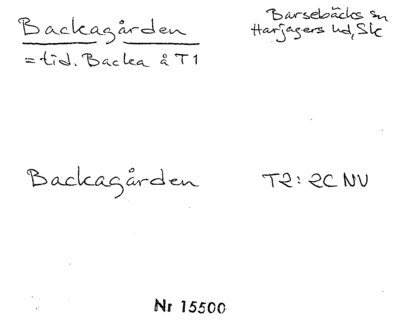 Backagården
Barsebäcks sn
Harjagers hd, Sk
= tid. Backa å T1
Backagården
T2: 2C NV
Nr 15500